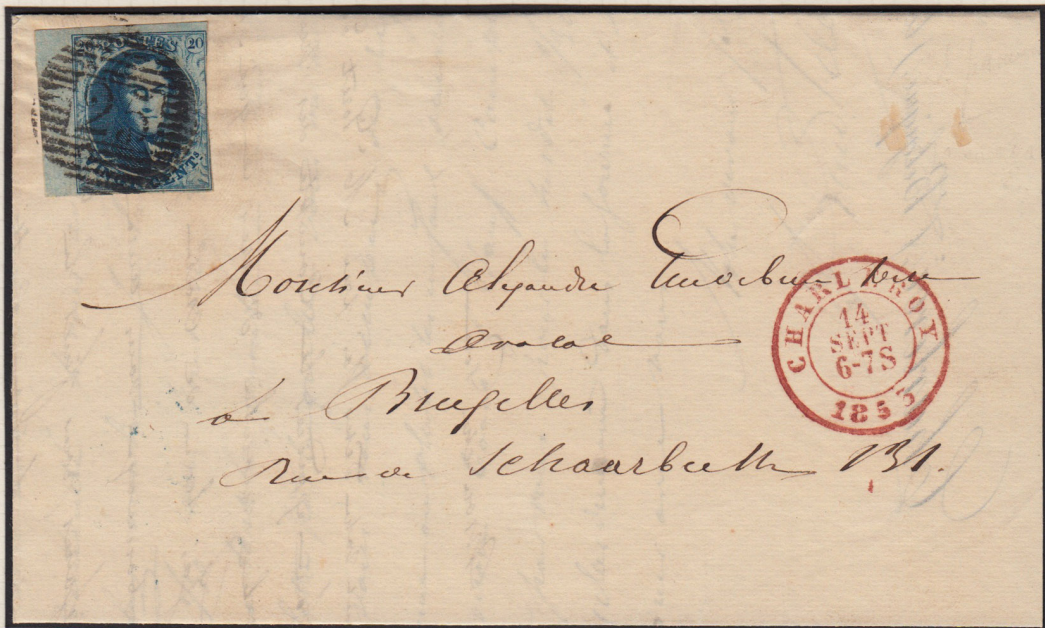 POSTES 20
CENTS
Monsieur Alexandre
avocat
à Bruxelles
Rue de Schaarbeek 131.
CHARLEROY
14
SEPT
6-7S
1853